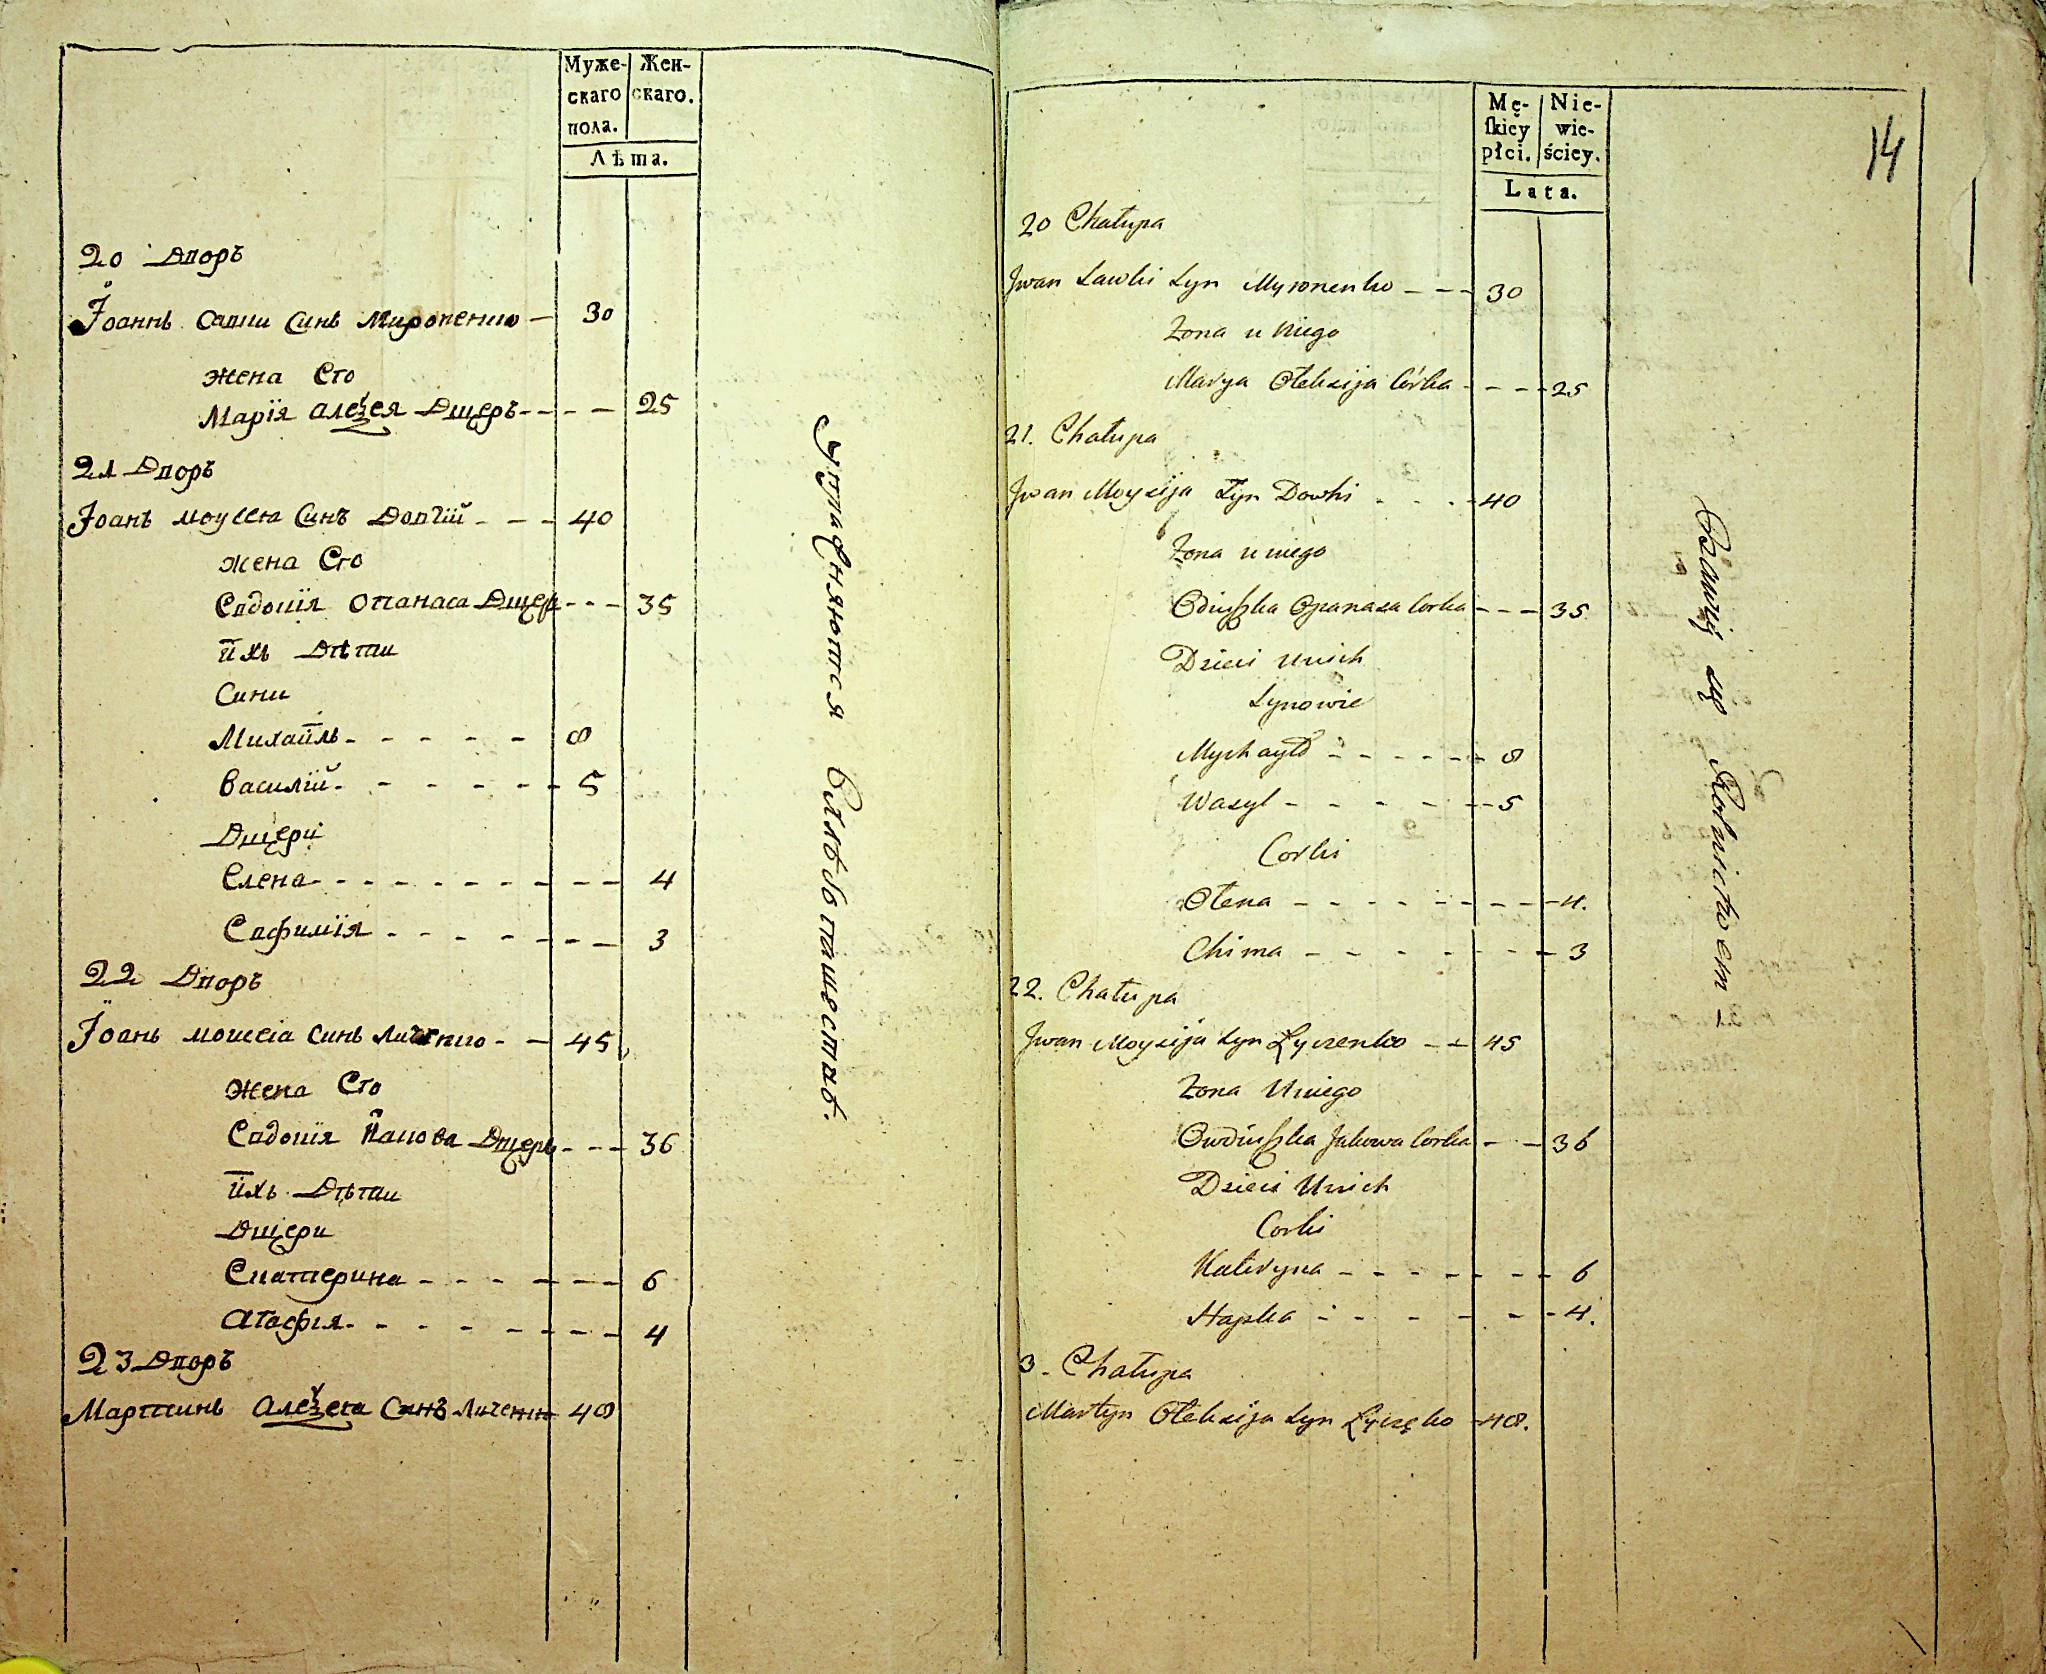 Муже-
скаго
пола.
Жен-
скаго.
Лѣта.
20 Дворъ
Іоаннъ Савки Синъ Мироненко — 30
жена Его
Марїя Алеѯея Дщерь - - - — 25
21 Дворъ
Іоанъ Моусея Синъ Довгій - - - 40
жена Его
Евдокїя Опанаса Дщер - - - 35
ихъ Дѣти
Сини
Михаилъ - - - - - 8
Василій - - - - - 5
Дщери
Елена - - - - - - - - 4
Евфимїя - - - - - - - 3
22 Дворъ
Іоанъ Моисеіа Синъ Личенко - - 45
Жена Его
Евдокїя Якова Дщерь - - - 36
ихъ Дѣти
Дщери
Екатерина - - - - - - - 6
Агафія - - - - - - - - 4
23 Дворъ
Мартинъ Алеѯея Синъ Личенко 48
Упражняются въ хлѣбопашествѣ.
Mę-
skiey
płci.
Nie-
wie-
ściey.
Lata.
14
20 Chałupa
Jwan Sawki Syn Myronenko - - - 30
Żona u Niego
Marya Ołeksija Córka - - - - 25
21. Chałupa
Jwan Moysija Syn Dowhi - - - - 40
Żona u niego
Odiuszka Opanasa Corka - - - 35
Dzieci Unich
Synowie
Mychayło - - - - - - 8
Wasyl - - - - - - - 5
Corki
Ołena - - - - - - - - - 4.
Chima - - - - - - - - 3
22. Chałupa
Jwan Moysija Syn Łyczenko - - 45
Żona Uniego
Owdiuszka Jakowa Corka - - 36
Dzieci Unich
Corki
Kateryna - - - - - - - 6
Hapka - - - - - - - 4.
3. Chałupa
Martyn Ołeksija Syn Łyczęko - 48.
Bawią się Rolnictwem